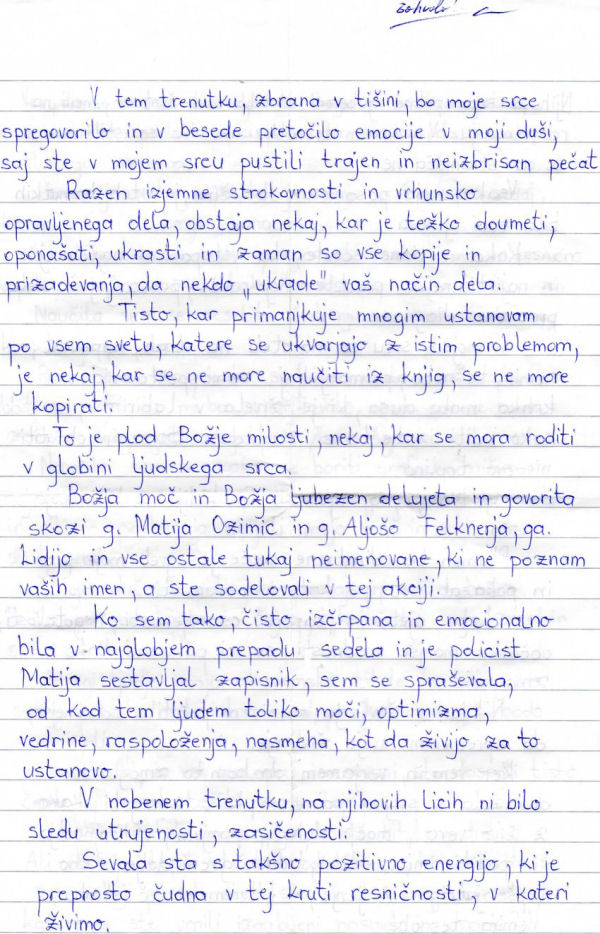 Zahvala!
V tem trenutku, zbrana v tišini, bo moje srce
spregovorilo in v besede pretočilo emocije v moji duši,
saj ste v mojem srcu pustili trajen in neizbrisan pečat
Razen izjemne strokovnosti in vrhunsko
opravljenega dela, obstaja nekaj, kar je težko doumeti,
oponašati, ukrasti in zaman so vse kopije in
prizadevanja, da nekdo „ukrade" vaš način dela.
Tisto, kar primanjkuje mnogim ustanovam
po vsem svetu, katere se ukvarjajo z istim problemom,
je nekaj, kar se ne more naučiti iz knjig, se ne more
kopirati.
To je plod Božje milosti, nekaj, kar se mora roditi
v globini ljudskega srca.
Božja moč in Božja ljubezen delujeta in govorita
skozi g. Matija Ozimic in g. Aljošo Felknerja, ga.
Lidijo in vse ostale tukaj neimenovane, ki ne poznam
vaših imen, a ste sodelovali v tej akciji.
Ko sem tako, čisto izčrpana in emocionalno
bila v najglobjem prepadu sedela in je policist
Matija sestavljal zapisnik, sem se spraševala,
od kod tem ljudem toliko moči, optimizma,
vedrine, raspoloženja, nasmeha, kot da živijo za to
ustanovo.
V nobenem trenutku, na njihovih licih ni bilo
sledu utrujenosti, zasičenosti.
Sevala sta s takšno pozitivno energijo, ki je
preprosto čudna v tej kruti resničnosti, v kateri
živimo.